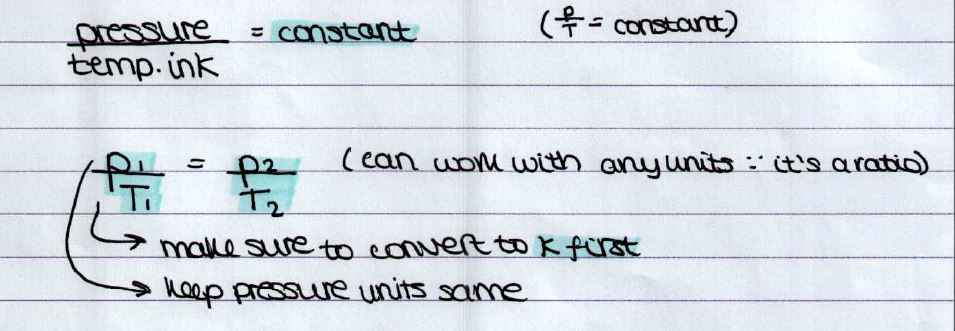 pressure = constant (P/T = constant)
temp. in K
P1/T1 = P2/T2 (can work with any units ∵ it's a ratio)
→ make sure to convert to K first
→ keep pressure units same